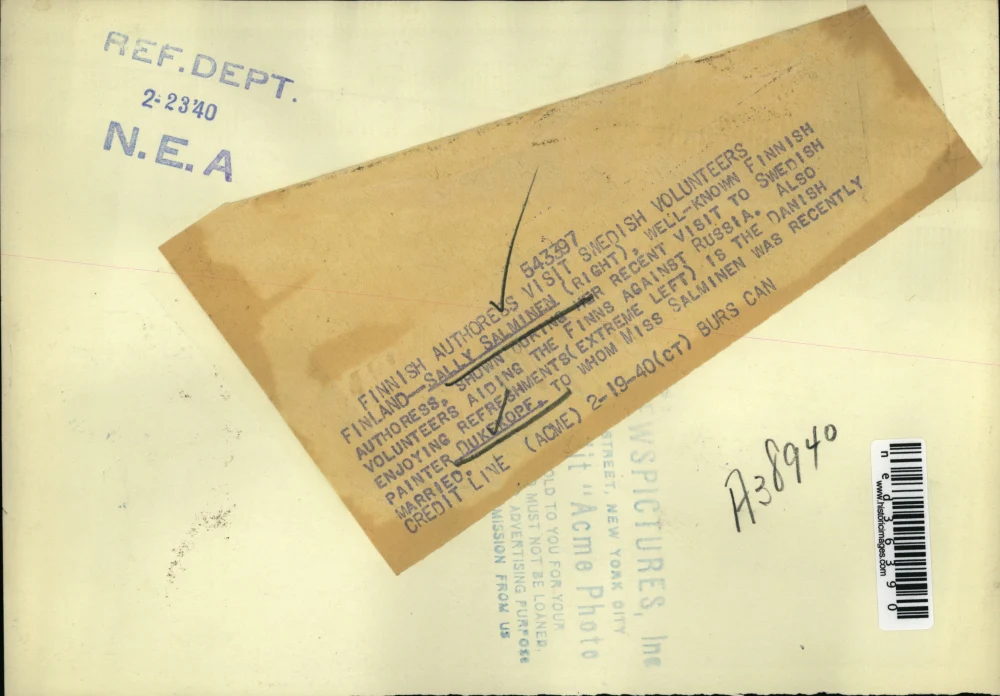 REF. DEPT.
2-23'40
N.E.A
543397
FINNISH AUTHORESS VISIT SWEDISH VOLUNTEERS
FINLAND--SALLY SALMINEN (RIGHT), WELL-KNOWN FINNISH
AUTHORESS, SHOWN DURING HER RECENT VISIT TO SWEDISH
VOLUNTEERS AIDING THE FINNS AGAINST RUSSIA. ALSO
ENJOYING REFRESHMENTS(EXTREME LEFT) IS THE DANISH
PAINTER TO WHOM MISS SALMINEN WAS RECENTLY
MARRIED.
CREDIT LINE (ACME) 2-19-40(CT) BURS CAN
A38940
EWSPICTURES, Inc
STREET, NEW YORK CITY
it "Acme Photo
OLD TO YOU FOR YOUR
MUST NOT BE LOANED,
ADVERTISING PURPOSE
MISSION FROM US
ned36390
www.historicimages.com